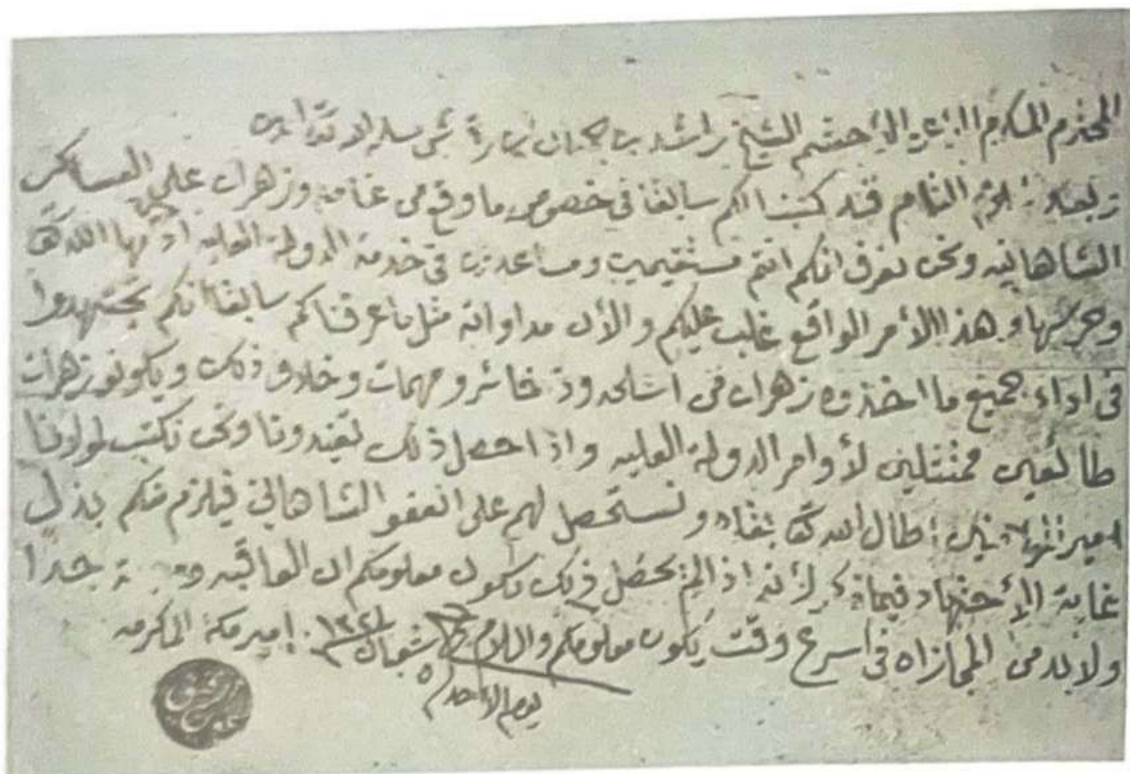 المحترم المكرم الأعز الأحشم الشيخ راشد بن جمعان
وبعد السلام التام قد كتبنا لكم سابقا في خصوص ما وقع من غامد وزهران على العساكر
الشاهانيه ونحن نعرف انكم انتم مستقيمين ومساعدين في خدمة الدولة العليه ادامها الله تعالى
وحرسها وهذا الأمر الواقع غلب عليكم والأن مداواته مثل ما عرفناكم سابقا انكم تجتهدوا
في اداء جميع ما اخذوه زهران من اسلحه وذخائر ومهمات وخلاف ذلك ويكونو زهران
طائعين ممتثلين لأوامر الدولة العليه واذا حصل ذلك تفيدونا ونحن نكتب لمولانا
امير المؤمنين اطال الله تعالى بقاه ونستحصل لهم على العفو الشاهاني فيلزم منكم بذل
غاية الإجتهاد فيما ذكر لأنه اذا لم يحصل ذلك يكون معلومكم ان العاقبه وخيمة جدا
ولابد من المجازاه في اسرع وقت يكون معلومكم والسلام شعبان ١٣٢٤ امير مكة المكرمه
يوم الأحد